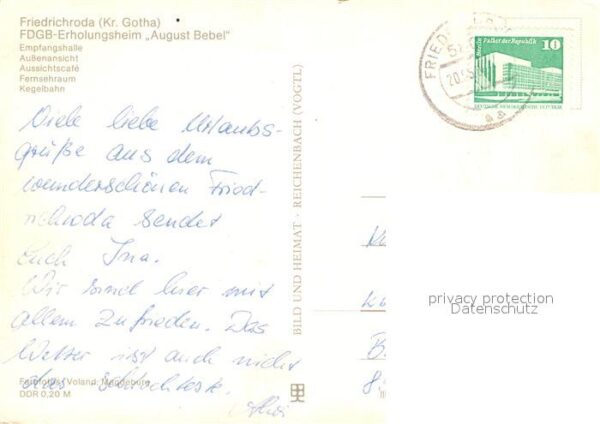 Friedrichroda (Kr. Gotha)
FDGB-Erholungsheim „August Bebel"
Empfangshalle
Außenansicht
Aussichtscafé
Fernsehraum
Kegelbahn
Viele liebe Urlaubs-
grüße aus dem
wunderschönen Fried-
richroda sendet
Euch Ina.
Wir sind hier mit
allem Zufrieden. Das
Wetter ist auch nicht
das schlechteste.
Voland, Magdeburg
DDR 0,20 M
BILD UND HEIMAT · REICHENBACH (VOGTL)
Berlin, Palast der Republik
10
DEUTSCHE DEMOKRATISCHE REPUBLIK
FRIED
20
privacy protection
Datenschutz
B
8